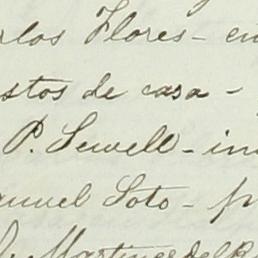 rlos Flores - en
stos de casa -
P. Sewell - in
anuel Soto - p
Martinez del R